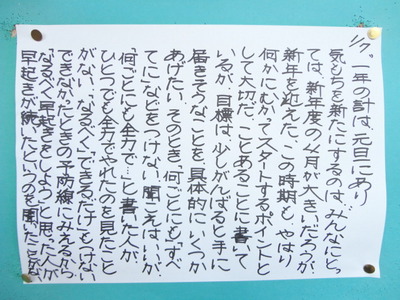 1/7 「一年の計は、元旦にあり
気もちを新たにするのは、みんなにとっ
ては、新年度の4月が大きいだろうが、
新年を迎えた、この時期も、やはり
何かにむかってスタートするポイントと
して大切だ。ことあるごとに書いて
いるが、目標は、少しがんばると手に
届きそうなことを、具体的にいくつか
あげたい。そのとき、「何ごとにも」「すべ
てに」などをつけない。聞こえはいいが、
「何ごとにも全力で…」と書いた人が、
ひとつでも全力でやれたのを見たこと
がない。「なるべく」「できるだけ」もいけない
できなかったときの予防線にみえるから
「なるべく早起きをしよう」と思った人が
早起きが続いたというのを聞いたことがな